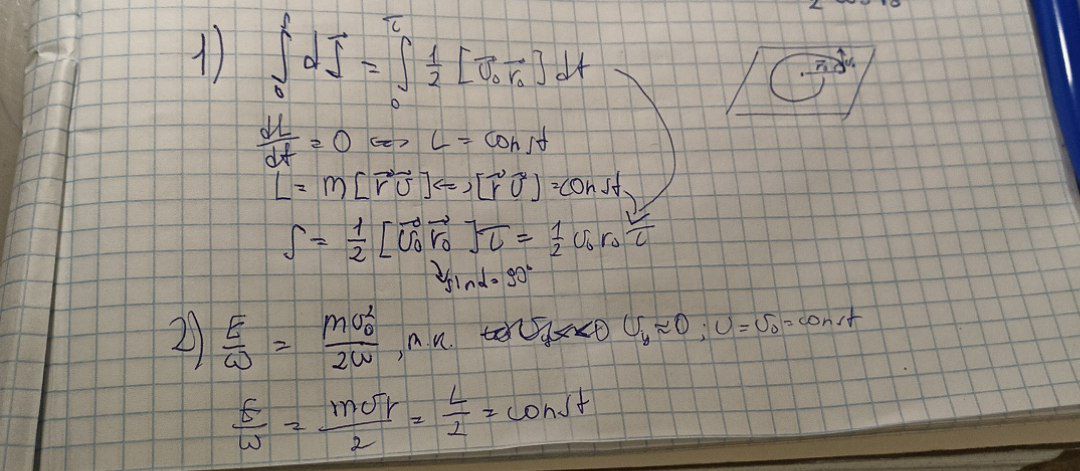 1) ∫₀^S dS⃗ = ∫₀^τ 1/2 [v⃗₀ r⃗₀] dt
dL/dt = 0 <=> L = const
L = m [r⃗ v⃗] <=> [r⃗ v⃗] = const
S = 1/2 [v⃗₀ r⃗₀] τ = 1/2 v₀ r₀ τ
sin α = 90°
2) E/ω = mv₀²/2ω , т.к. v_y ≈ 0 ; v = v₀ = const
E/ω = mvr/2 = L/2 = const